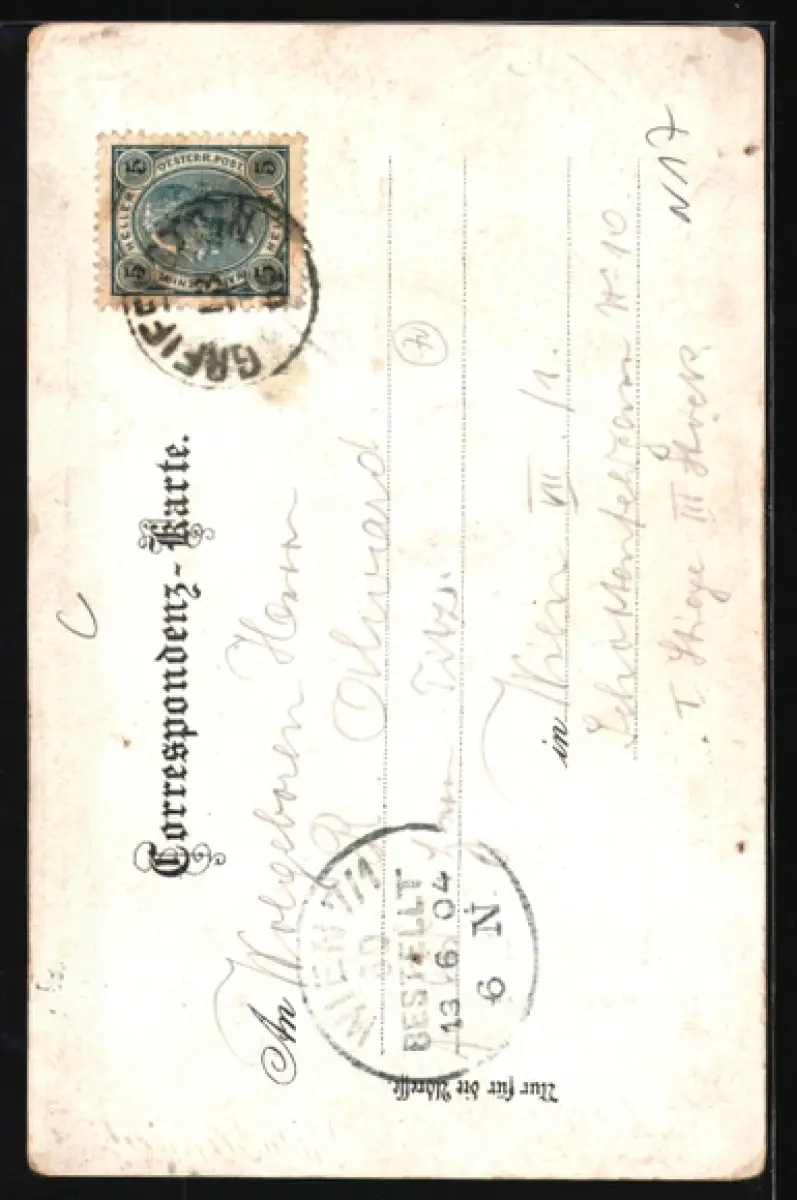 Correspondenz-Karte.
OESTERR. POST
5 5 5 5
HELLER HELLER
GREIF
An Wolgeboren Herrn
in Wien VII./1.
Schottenfeldgasse No 10
I. Stiege III Stock
Nur für die Adresse.
WIEN 7/1
BESTELLT
13 6 04
6 N
N 17
C